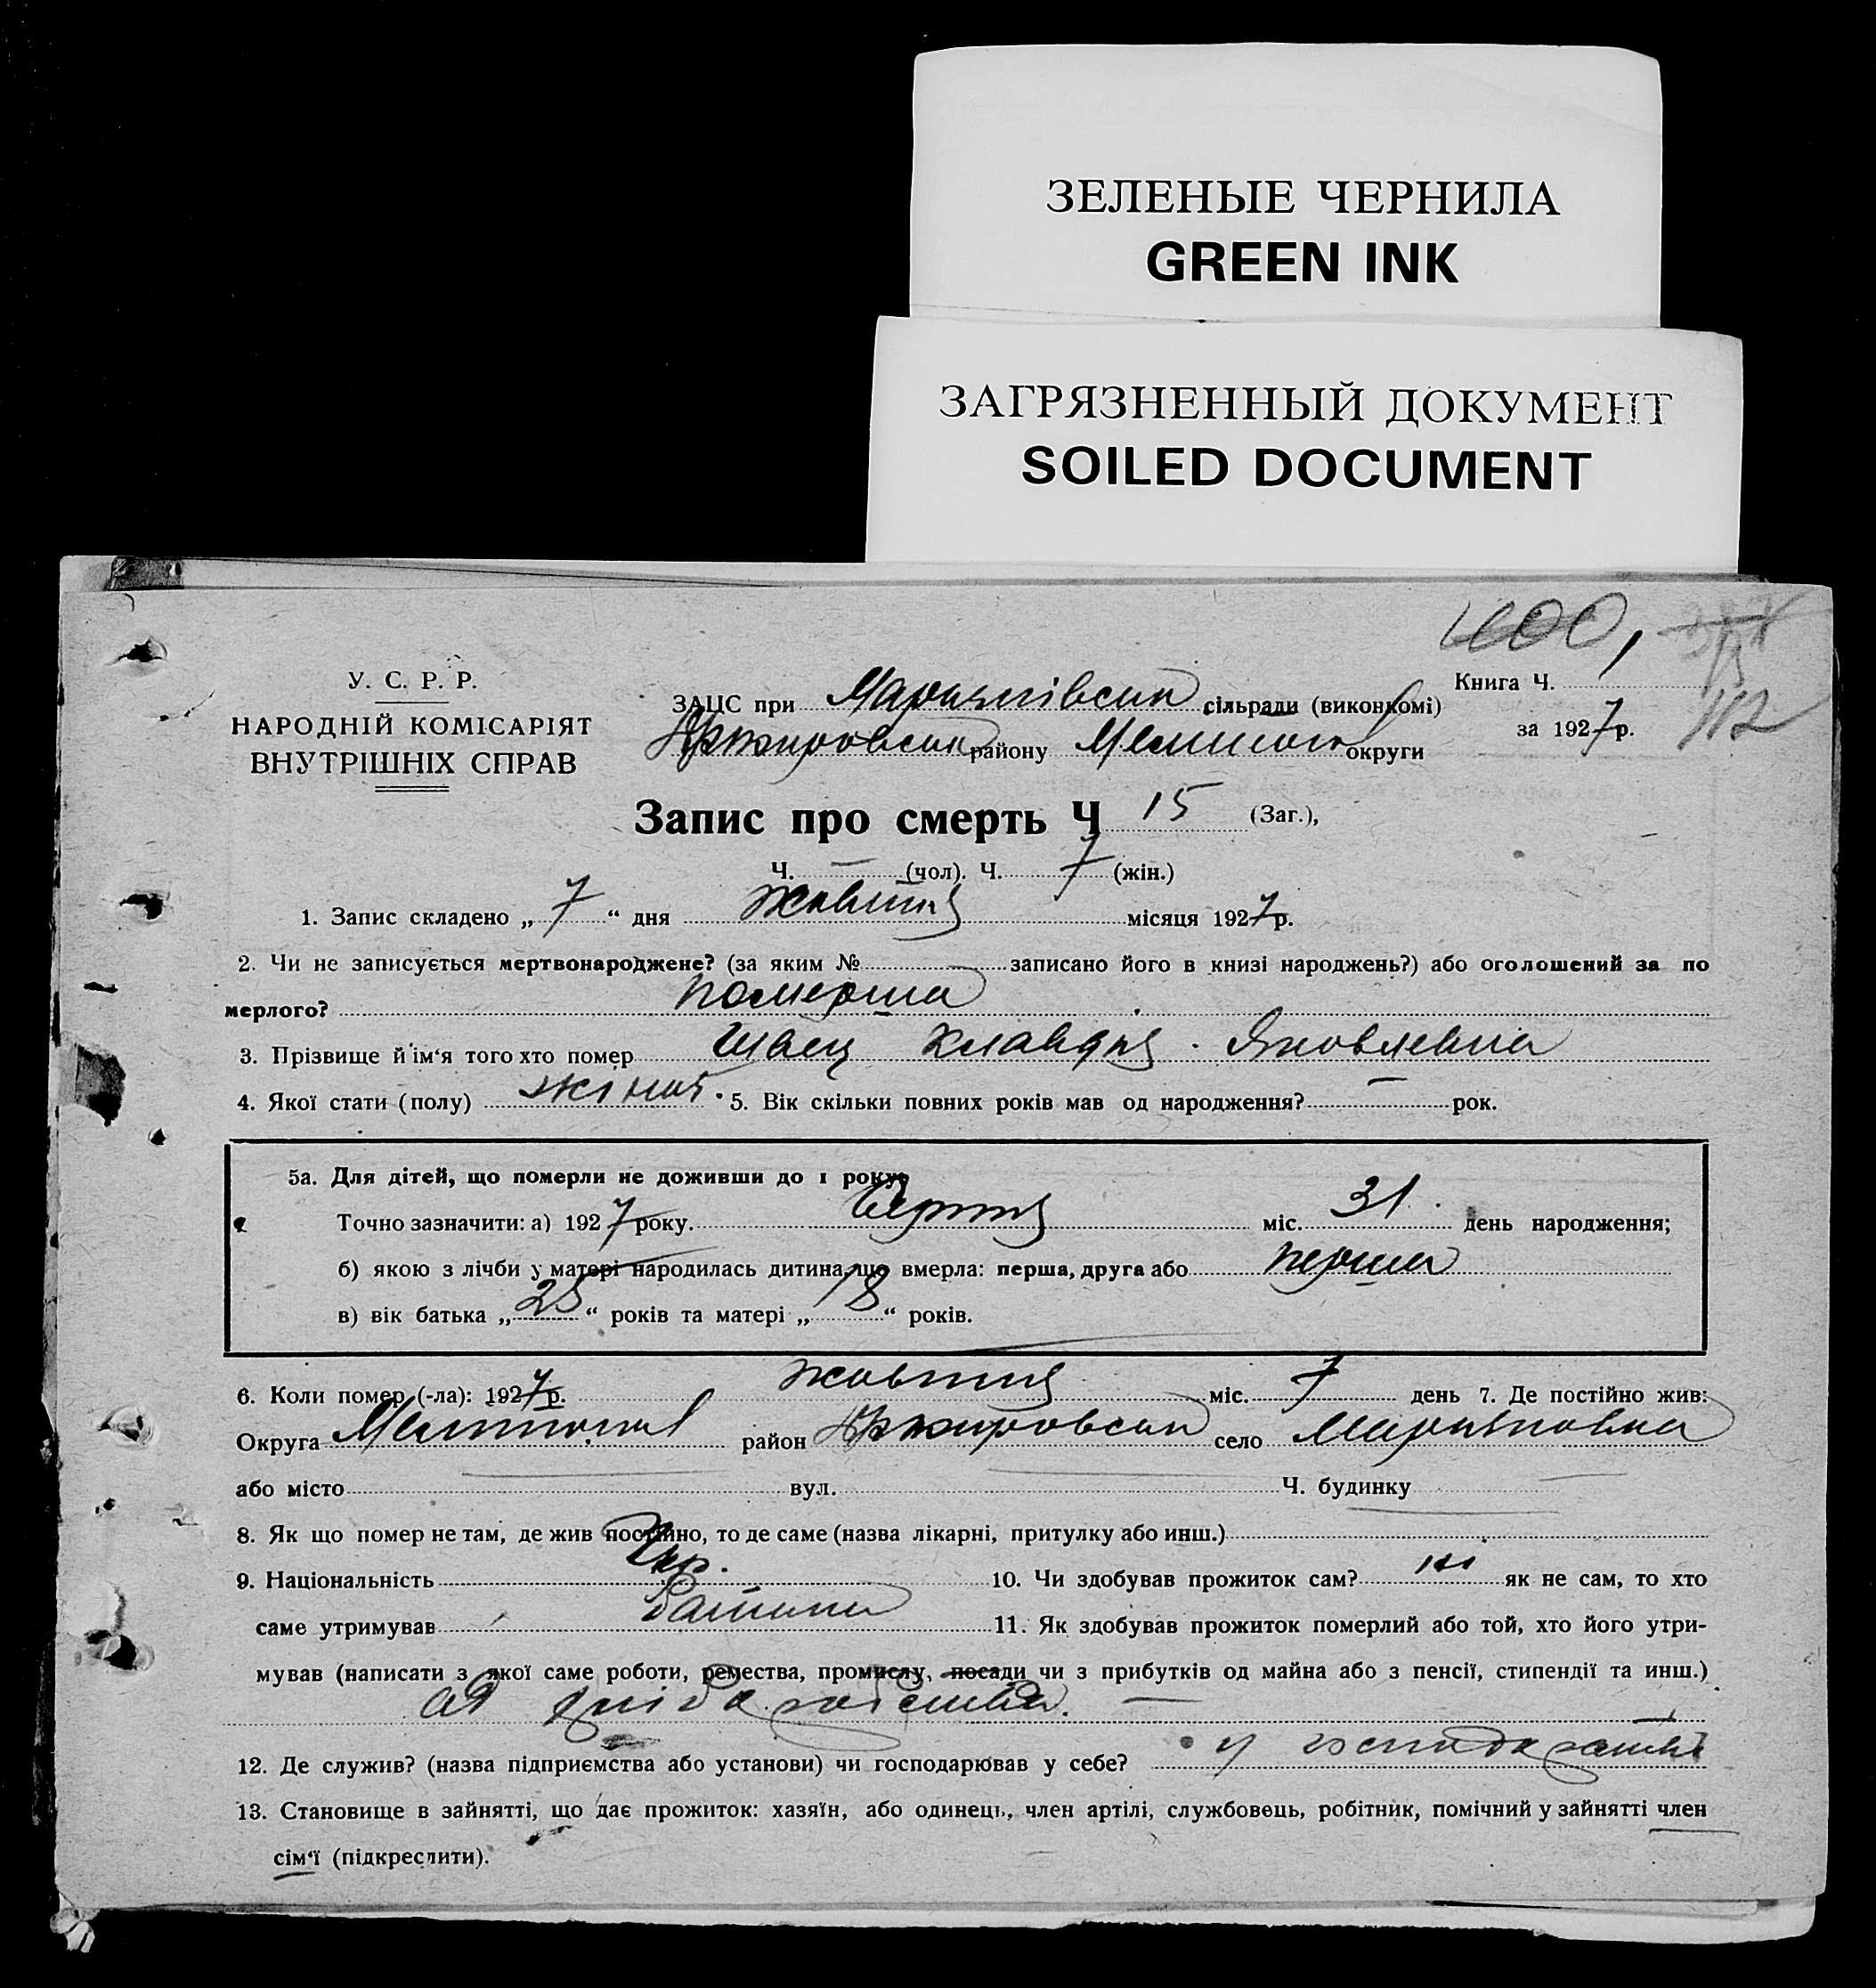 ЗЕЛЕНЫЕ ЧЕРНИЛА
GREEN INK
ЗАГРЯЗНЕННЫЙ ДОКУМЕНТ
SOILED DOCUMENT
400,
У. С. Р. Р.
НАРОДНІЙ КОМІСАРІЯТ
ВНУТРІШНІХ СПРАВ
ЗАЦС при Мариянівськ сільради (виконкомі)
району Меліт округи
Книга Ч.
за 1927 р.
112
Запис про смерть Ч 15 (Заг.),
Ч. — (чол). Ч. 7 (жін.)
1. Запис складено „ 7 “ дня Жовтня місяця 1927 р.
2. Чи не записується мертвонароджене? (за яким № — записано його в книзі народжень?) або оголошений за по
мерлого? померша
3. Прізвище й ім‘я того хто помер Швец Клавдия Яковлевна
4. Якої стати (полу) жіноч. 5. Вік скільки повних років мав од народження? — рок.
5а. Для дітей, що померли не доживши до 1 року:
Точно зазначити: а) 1927 року. Серпня міс. 31 день народження;
б) якою з лічби у матері народилась дитина, що вмерла: перша, друга або перша
в) вік батька „ 25 “ років та матері „ 18 “ років.
6. Коли помер (-ла): 1927 р. жовтня міс. 7 день 7. Де постійно жив:
Округа Мелітопол район село Мариановка
або місто — вул. — Ч. будинку —
8. Як що помер не там, де жив постійно, то де саме (назва лікарні, притулку або инш.)
9. Національність Укр. 10. Чи здобував прожиток сам? ні як не сам, то хто
саме утримував батьки 11. Як здобував прожиток померлий або той, хто його утри-
мував (написати з якої саме роботи, ремества, промислу, посади чи з прибутків од майна або з пенсії, стипендії та инш.)
од хлібаробства. —
12. Де служив? (назва підприємства або установи) чи господарював у себе? у господарстві
13. Становище в зайнятті, що дає прожиток: хазяїн, або одинець, член артілі, службовець, робітник, помічний у зайнятті член
сім‘ї (підкреслити).